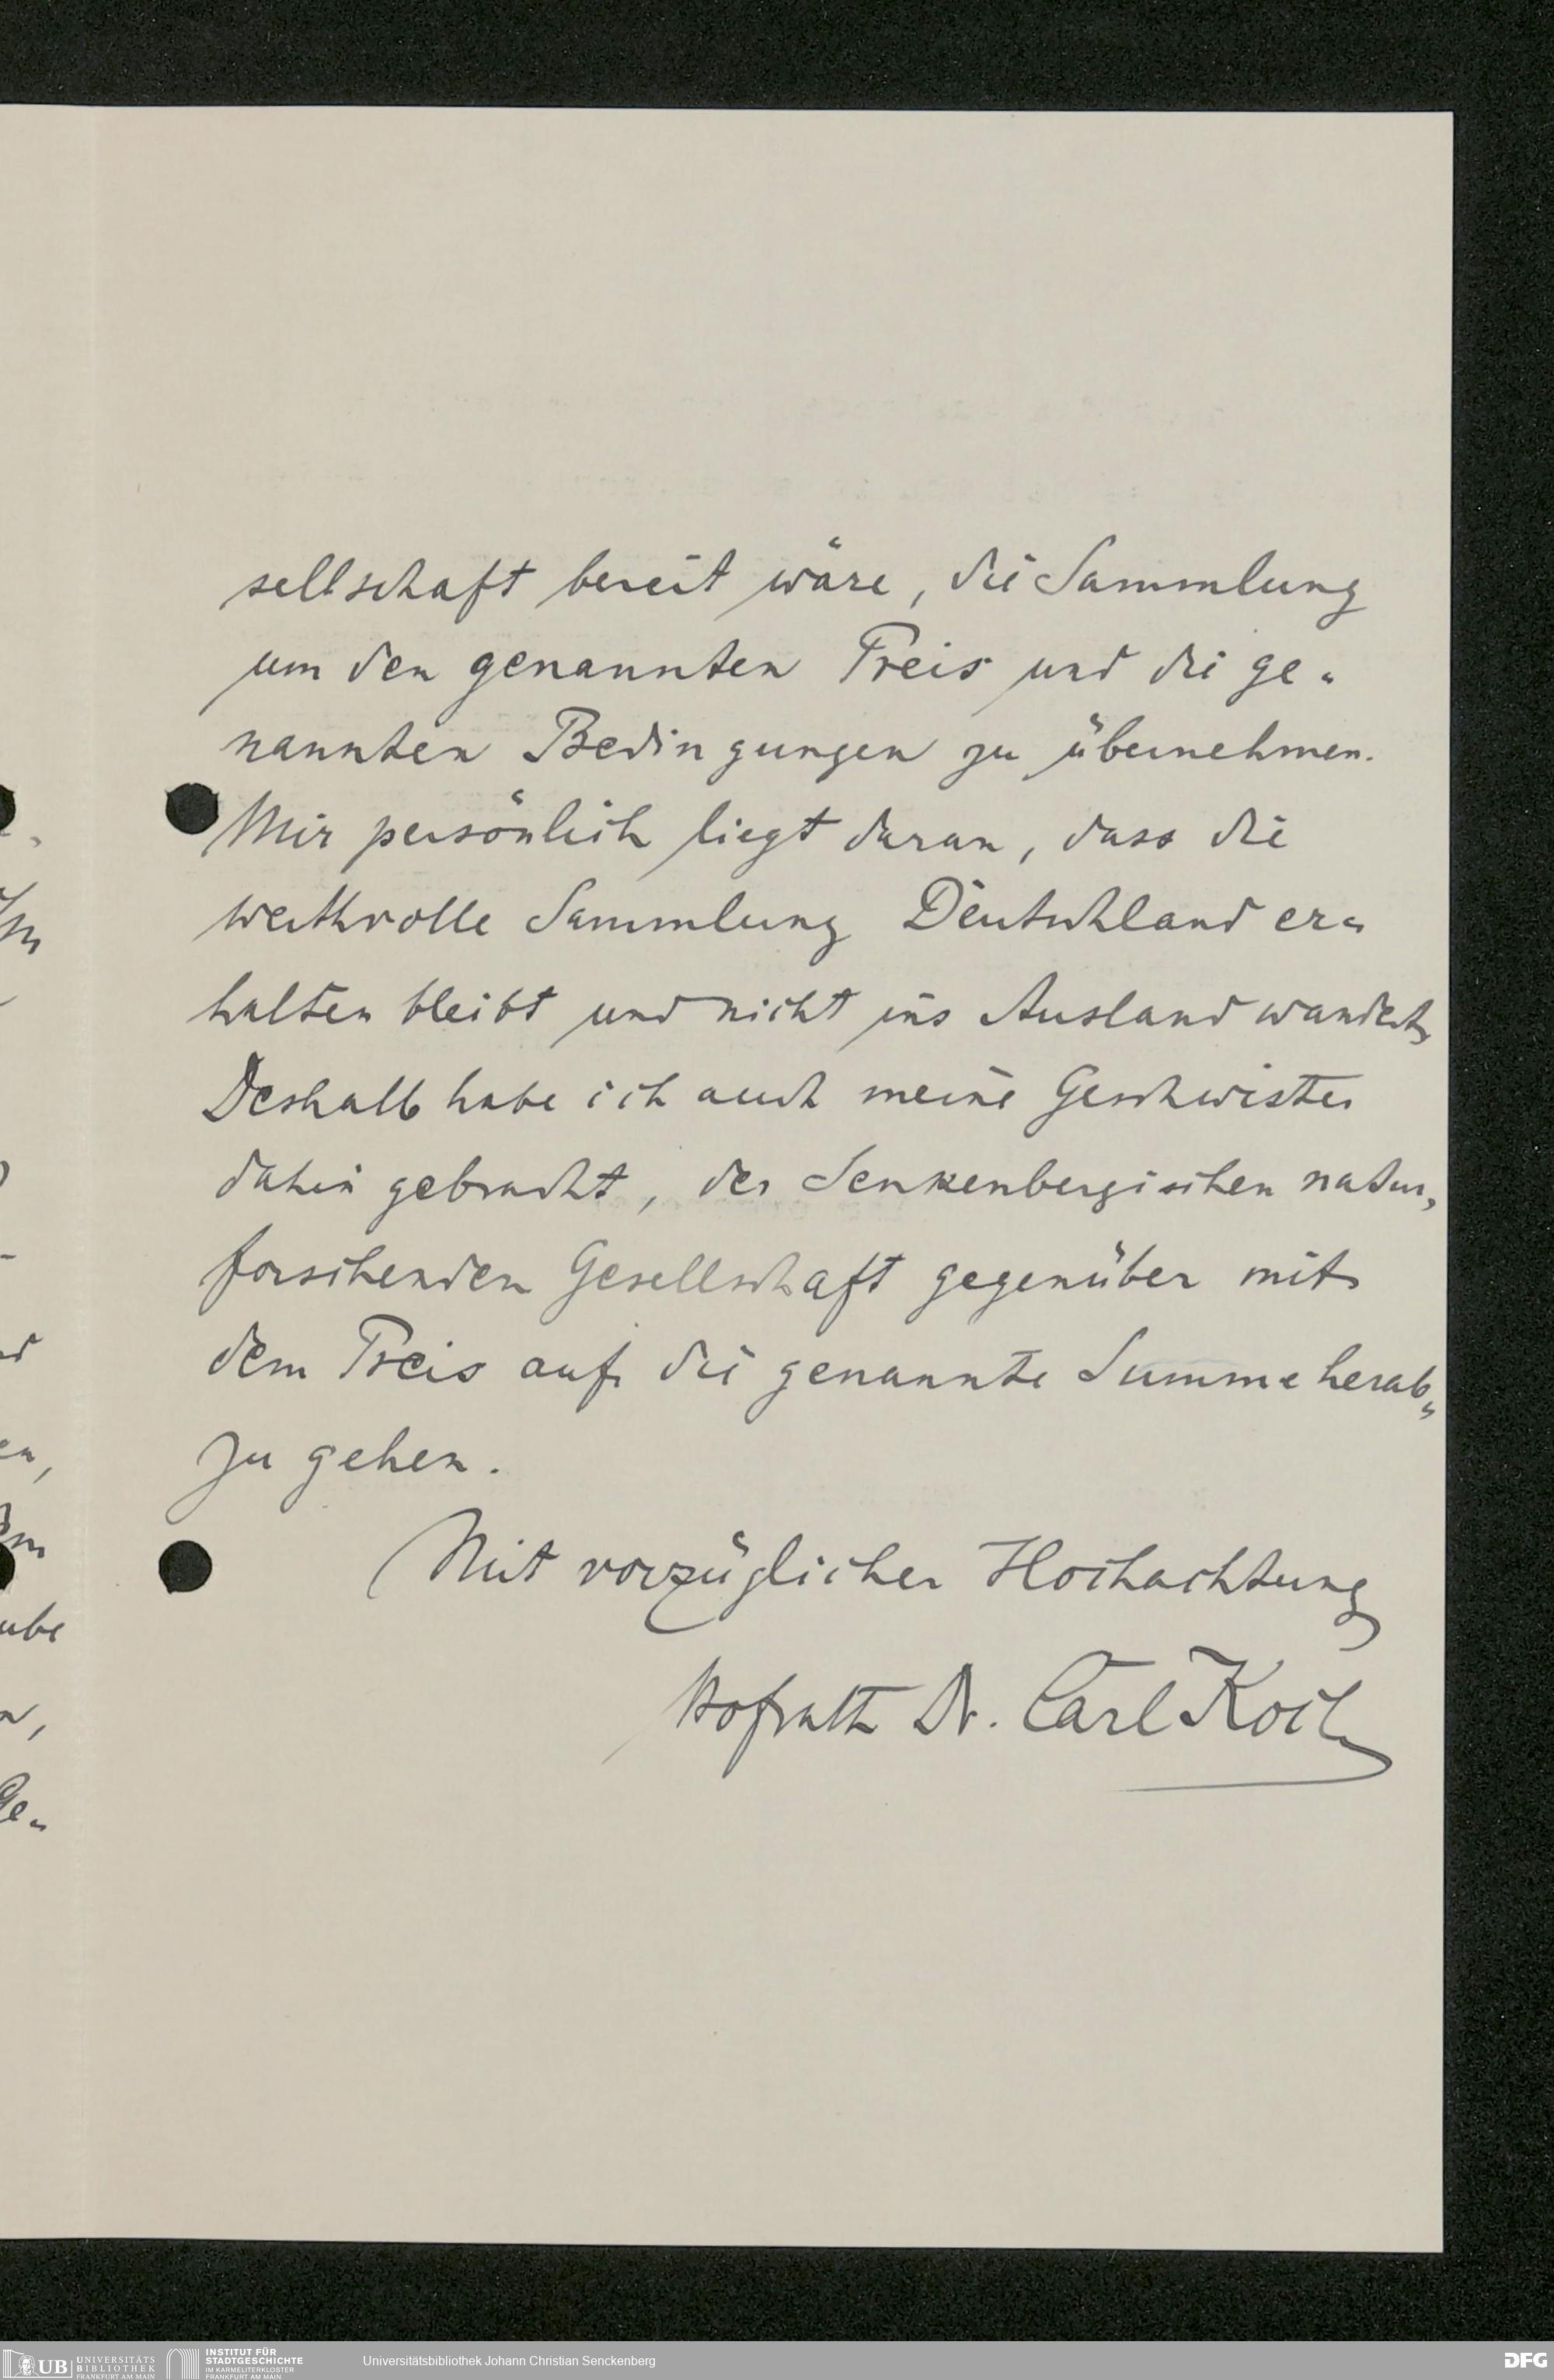 sellschaft bereit wäre, die Sammlung
um den genannten Preis und die ge-
nannten Bedingungen zu übernehmen.
Mir persönlich liegt daran, dass die
werthvolle Sammlung Deutschland er-
halten bleibt und nicht ins Ausland wandert.
Deshalb habe ich auch meine Geschwister
dahin gebracht, der Senkenbergischen natur-
forschenden Gesellschaft gegenüber mit
dem Preis auf die genannte Summe herab-
zu gehen.
Mit vorzüglicher Hochachtung
Hofrath Dr. Carl Koch
UB UNIVERSITÄTS BIBLIOTHEK FRANKFURT AM MAIN
INSTITUT FÜR STADTGESCHICHTE IM KARMELITERKLOSTER FRANKFURT AM MAIN
Universitätsbibliothek Johann Christian Senckenberg
DFG